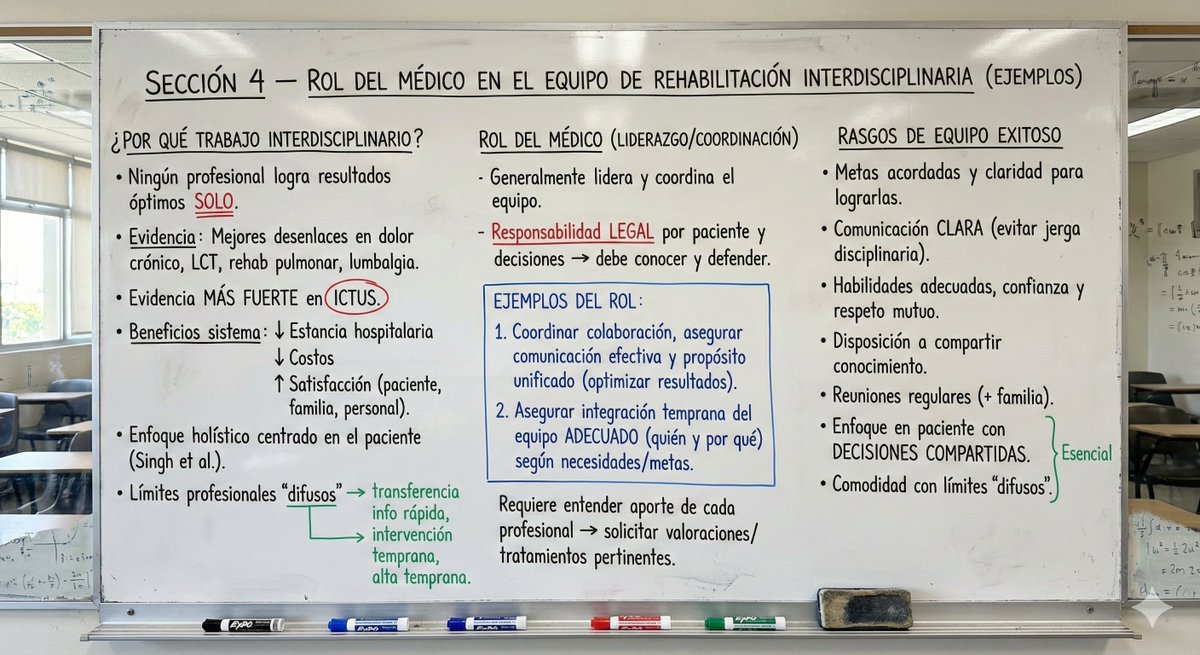 SECCIÓN 4 — ROL DEL MÉDICO EN EL EQUIPO DE REHABILITACIÓN INTERDISCIPLINARIA (EJEMPLOS)
¿POR QUÉ TRABAJO INTERDISCIPLINARIO?
• Ningún profesional logra resultados
óptimos SOLO.
• Evidencia: Mejores desenlaces en dolor
crónico, LCT, rehab pulmonar, lumbalgia.
• Evidencia MÁS FUERTE en ICTUS.
• Beneficios sistema: ↓ Estancia hospitalaria
↓ Costos
↑ Satisfacción (paciente,
familia, personal).
• Enfoque holístico centrado en el paciente
(Singh et al.).
• Límites profesionales “difusos” → transferencia
info rápida,
→ intervención
temprana,
alta temprana.
ROL DEL MÉDICO (LIDERAZGO/COORDINACIÓN)
- Generalmente lidera y coordina el
equipo.
- Responsabilidad LEGAL por paciente y
decisiones → debe conocer y defender.
EJEMPLOS DEL ROL:
1. Coordinar colaboración, asegurar
comunicación efectiva y propósito
unificado (optimizar resultados).
2. Asegurar integración temprana del
equipo ADECUADO (quién y por qué)
según necesidades/metas.
Requiere entender aporte de cada
profesional → solicitar valoraciones/
tratamientos pertinentes.
RASGOS DE EQUIPO EXITOSO
• Metas acordadas y claridad para
lograrlas.
• Comunicación CLARA (evitar jerga
disciplinaria).
• Habilidades adecuadas, confianza y
respeto mutuo.
• Disposición a compartir
conocimiento.
• Reuniones regulares (+ familia).
• Enfoque en paciente con
DECISIONES COMPARTIDAS.
• Comodidad con límites “difusos”.
Esencial
EXPO
EXPO